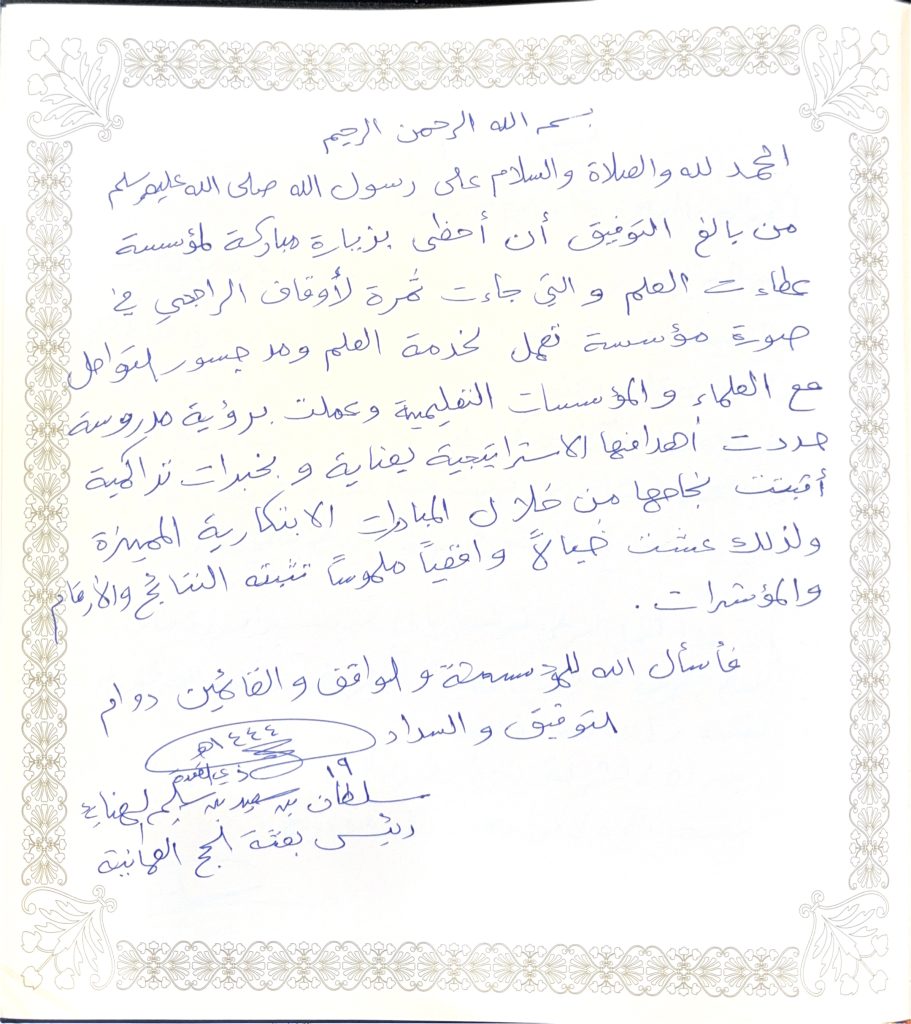 بسم الله الرحمن الرحيم
الحمد لله والصلاة والسلام على رسول الله صلى الله عليه وسلم
من بالغ التوفيق أن أحظى بزيارة مباركة لمؤسسة
عطاءات العلم والتي جاءت ثمرة لأوقاف الراجحي في
صورة مؤسسة تعمل لخدمة العلم ومد جسور التواصل
مع العلماء والمؤسسات التعليمية وعملت برؤية مدروسة
حددت أهدافها الاستراتيجية بعناية و بخبرات تراكمية
أثبتت نجاحها من خلال المبادرات الابتكارية المميزة
ولذلك عشت خيالاً واقعياً ملموساً تثبته النتائج والأرقام
والمؤشرات .
فأسأل الله للمؤسسة والواقف والقائمين دوام
التوفيق والسداد
١٩ ذي القعدة ١٤٤٤هـ
سلطان بن سعيد بن سليم الهنائي
رئيس بعثة الحج العمانية